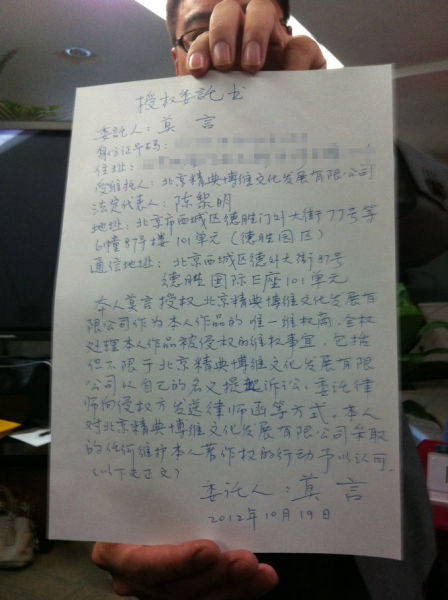 授权委託书
委託人：莫 言
身份证号码：
住址：
受维托人：北京精典博维文化发展有限公司
法定代表人：陈黎明
地址：北京市西城区德胜门外大街77号等
6幢87号楼101单元（德胜园区）
通信地址：北京西城区德外大街87号
德胜国际E座101单元
本人莫言授权北京精典博维文化发展有
限公司作为本人作品的唯一维权商，全权
处理本人作品被侵权的维权事宜，包括
但不限于北京精典博维文化发展有限
公司以自己的名义提起诉讼、委托律
师向侵权方发送律师函等方式。本人
对北京精典博维文化发展有限公司采取
的任何维护本人著作权的行动予以认可。
（以下无正文）
委托人：莫 言
2012年10月19日